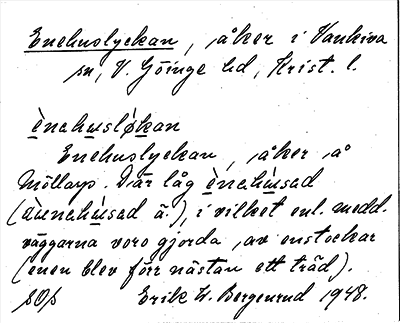 Enehuslyckan, åker i Vankiva
sn, V. Göinge hd, Krist. l.
ènahu̲slø̀k̲an
Enehuslyckan, åker på
Möllarp. Där låg ènahu̲sad
(àunahu̲sad ä.), i vilket enl. medd.
väggarna voro gjorda av enstockar
(enen blev förr nästan ett träd).
sOs Erik W. Bergenrud 1948.